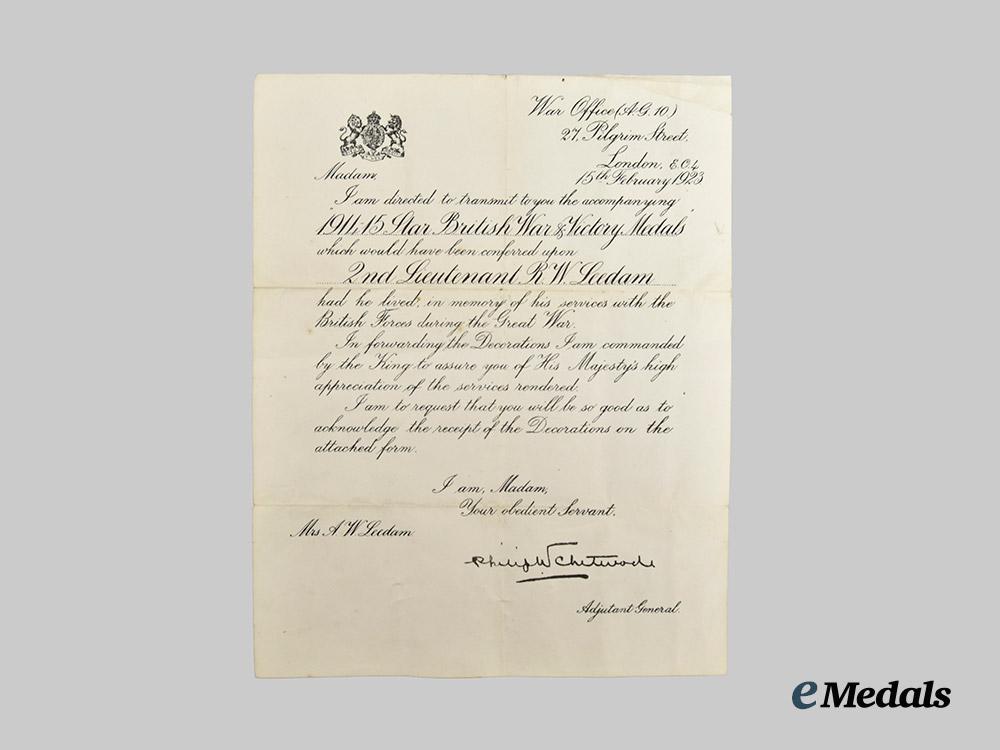 War Office (A.G. 10)
27, Pilgrim Street,
London, E.C.4.
15th February 1923
Madam,
I am directed to transmit to you the accompanying
1914-15 Star British War & Victory Medals
which would have been conferred upon
2nd Lieutenant R. W. Leedam
had he lived, in memory of his services with the
British Forces during the Great War.
In forwarding the Decorations I am commanded
by the King to assure you of His Majesty's high
appreciation of the services rendered.
I am to request that you will be so good as to
acknowledge the receipt of the Decorations on the
attached form.
I am, Madam,
Your obedient Servant.
Mrs A W Leedam
Philip W Chetwode
Adjutant General.
eMedals